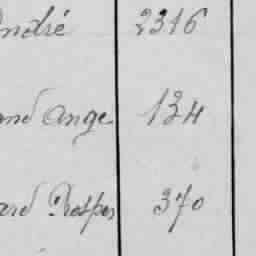 André 2316
and Ange 134
ard Prosper 370